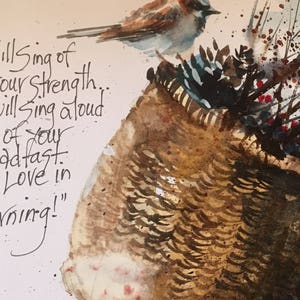 ill Sing of
our Strength...
will Sing aloud
of your
adfast
Love in
rning!"